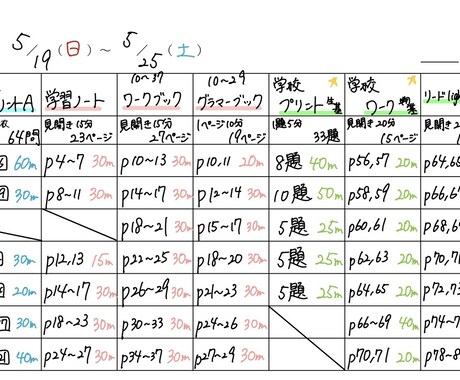 5/19(日)~5/25(土)
学習ノート 10~37 ワークブック 10~29 グラマーブック 学校プリント 学校ワーク
64問 見開き15分 23ページ 見開き15分 27ページ 1ページ10分 19ページ 1題5分 33題 見開き20分 15ページ
60m p4~7 30m p10~13 30m p10,11 20m 8題 40m p56,57 20m
30m p8~11 30m p14~17 30m p12~14 30m 10題 50m p58,59 20m
p18~21 30m p15~17 30m 5題 25m p60,61 20m
30m p12,13 15m p22~25 30m p18~20 30m 5題 25m p62,63 20m p70,71
20m p14~17 30m p26~29 30m p21~23 30m 5題 25m p64,65 20m
30m p18~23 30m p30~33 30m p24~26 30m p66~69 40m
40m p24~27 30m p34~37 30m p27~29 30m p70,71 20m